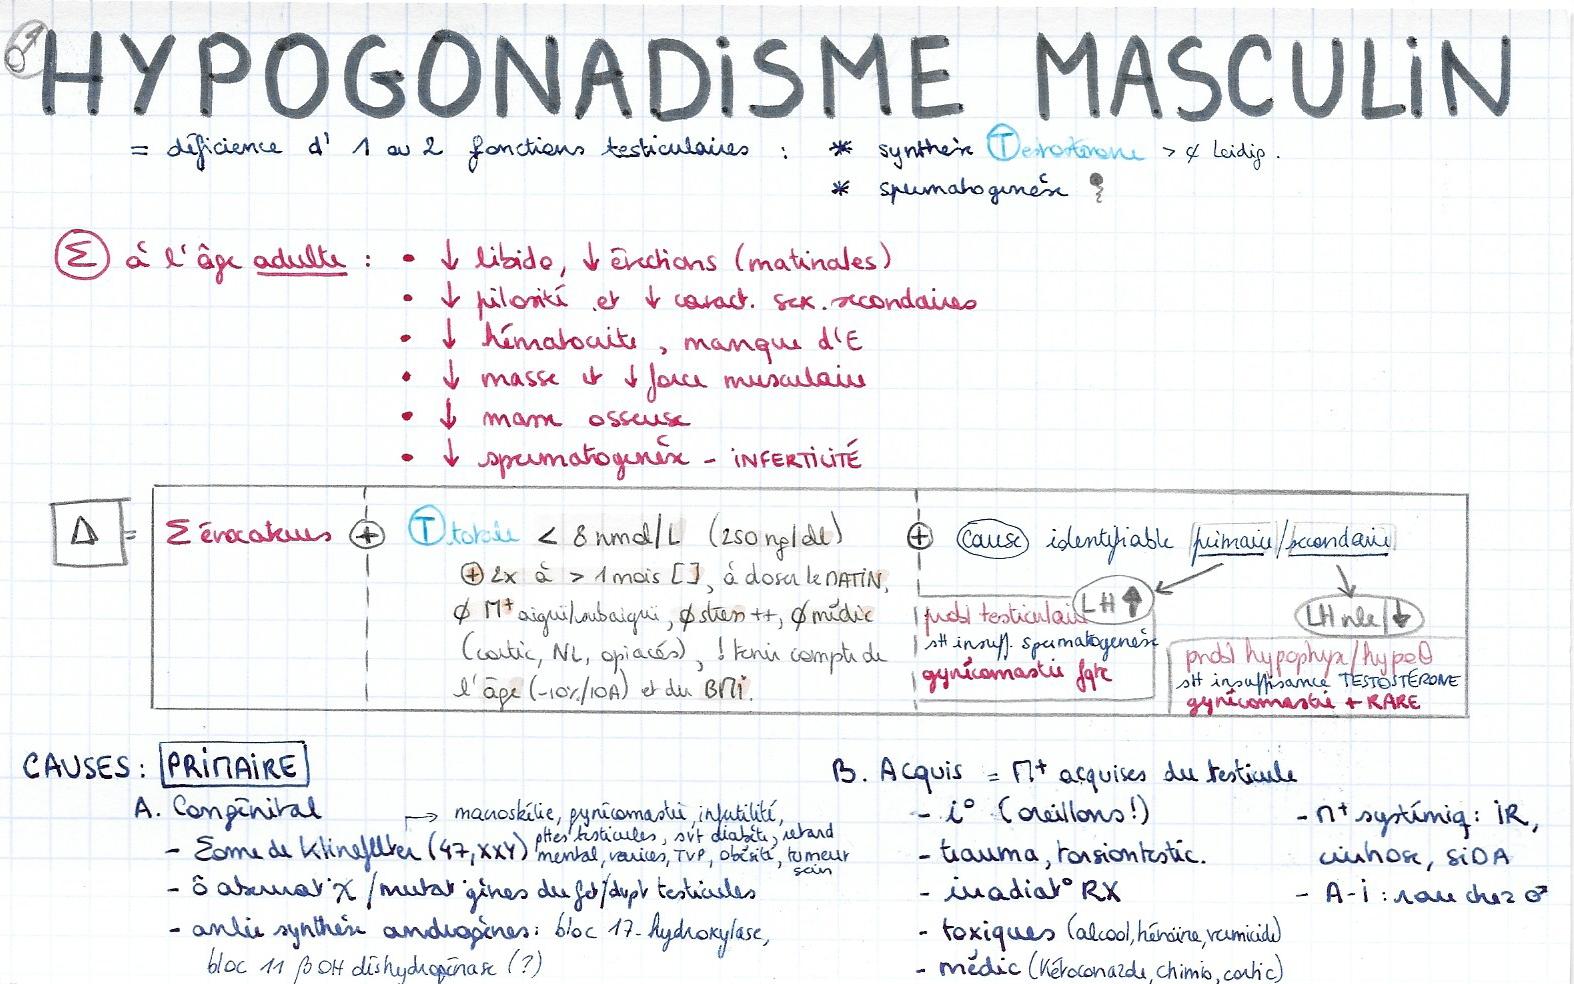 ♂ HYPOGONADISME MASCULIN
= déficience d' 1 ou 2 fonctions testiculaires : * synthèse Testostérone > ¢ Leidig.
* spermatogenèse
Σ à l'âge adulte : • ↓ libido, ↓ érections (matinales)
• ↓ pilosité et ↓ caract. sex. secondaires
• ↓ hématocrite, manque d'E
• ↓ masse et ↓ force musculaire
• ↓ masse osseuse
• ↓ spermatogenèse - INFERTILITÉ
Δ = Σ évocateurs ⊕ T totale < 8 nmol/L (250 ng/dl) ⊕ Cause identifiable primaire/secondaire
⊕ 2x à > 1 mois [], à doser le MATIN,
∅ M+ aiguë/subaiguë, ∅ stress ++, ∅ médic
(cortic, NL, opiacés), ! tenir compte de
l'âge (-10%/10A) et du BMI.
LH ↑
probl testiculaire
st insuff. spermatogenèse
gynécomastie fqte
LH nle/↓
probl hypophyse/hypoθ
st insuffisance TESTOSTÉRONE
gynécomastie + RARE
CAUSES : PRIMAIRE
A. Congénital
→ macroskélie, gynécomastie, infertilité,
ptes testicules, svt diabète, retard
mental, varices, TVP, obésité, tumeur
sein
- Σome de Klinefelter (47,XXY)
- ô abermat° X / mutat° gènes du fct/dvpt testicules
- anlie synthèse androgènes : bloc 17-hydroxylase,
bloc 11 β OH déshydrogénase (?)
B. Acquis = M+ acquises du testicule
- i° (oreillons!)
- trauma, torsion testic.
- irradiat° RX
- toxiques (alcool, héroïne, vermicide)
- médic (Kétoconazole, chimio, cortic)
- M+ systémiq : IR,
cirrhose, SIDA
- A-i : rare chez ♂